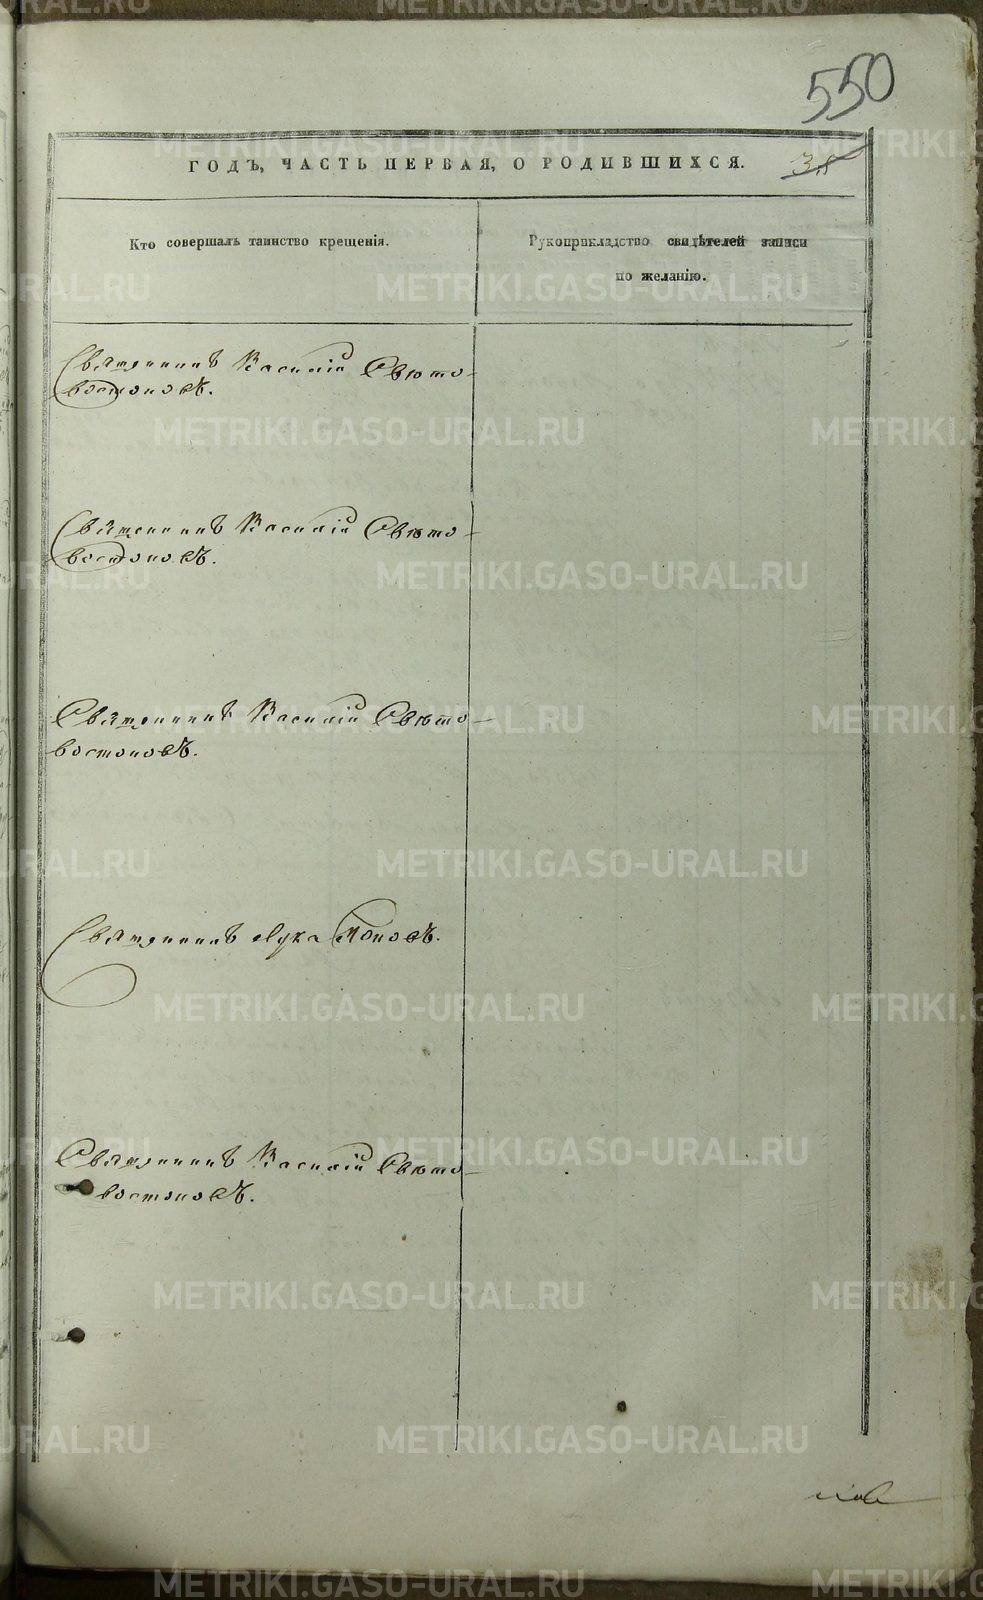 550
ГОДЪ, ЧАСТЬ ПЕРВАЯ, О РОДИВШИХСЯ.
Кто совершалъ таинство крещенія.
Рукоприкладство свидѣтелей записи
по желанію.
Священникъ Василій Свѣто-
востоковъ.
Священникъ Василій Свѣто-
востоковъ.
Священникъ Василій Свѣто-
востоковъ.
Священникъ Лука Поповъ.
Священникъ Василій Свѣто-
востоковъ.
METRIKI.GASO-URAL.RU